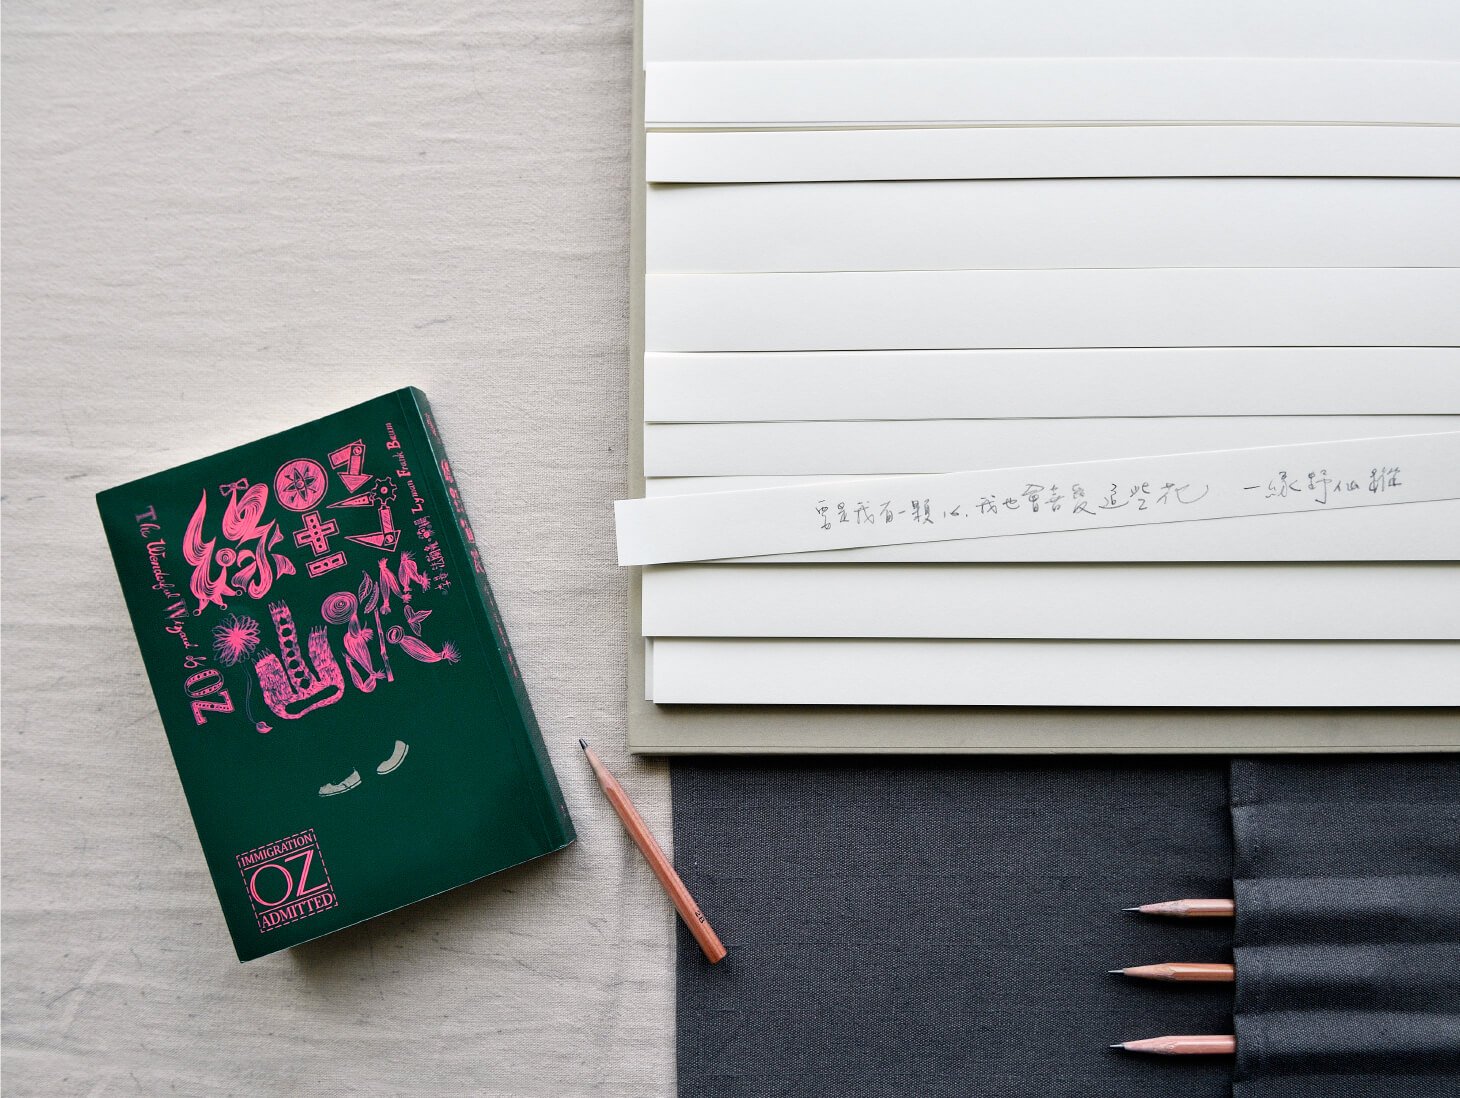 綠野仙蹤
The Wonderful Wizard of OZ
Lyman Frank Baum
IMMIGRATION
OZ
ADMITTED
要是我有一顆心,我也會喜愛這些花 —綠野仙蹤
2B